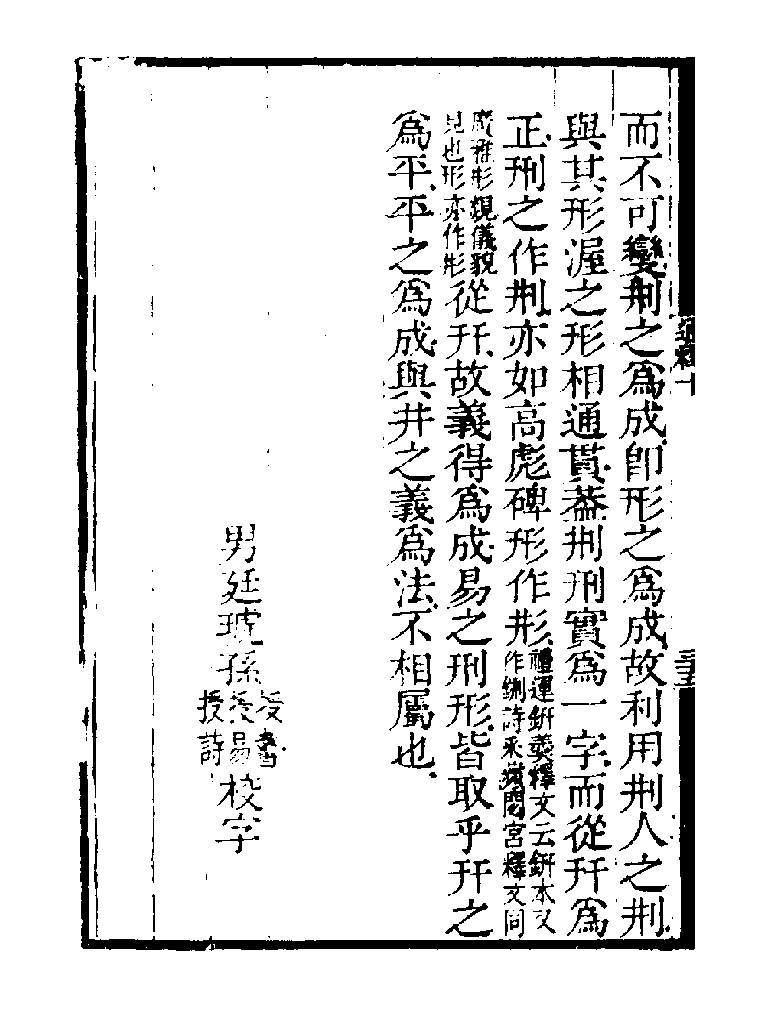 而不可變荆之爲成卽形之爲成故利用荆人之荆
與其形渥之形相通貫葢荆刑實爲一字而從幵爲
正刑之作荆亦如高彪碑形作形禮運鈃羹釋文云鈃本又
作鉶詩采蘋閟宮釋文同
廣雅形貌儀貌
見也形亦作形從幵故義得爲成易之刑形皆取乎幵之
爲平平之爲成與井之義爲法不相屬也
男廷琥孫授書
授易
授詩校字
通釋十
三十五